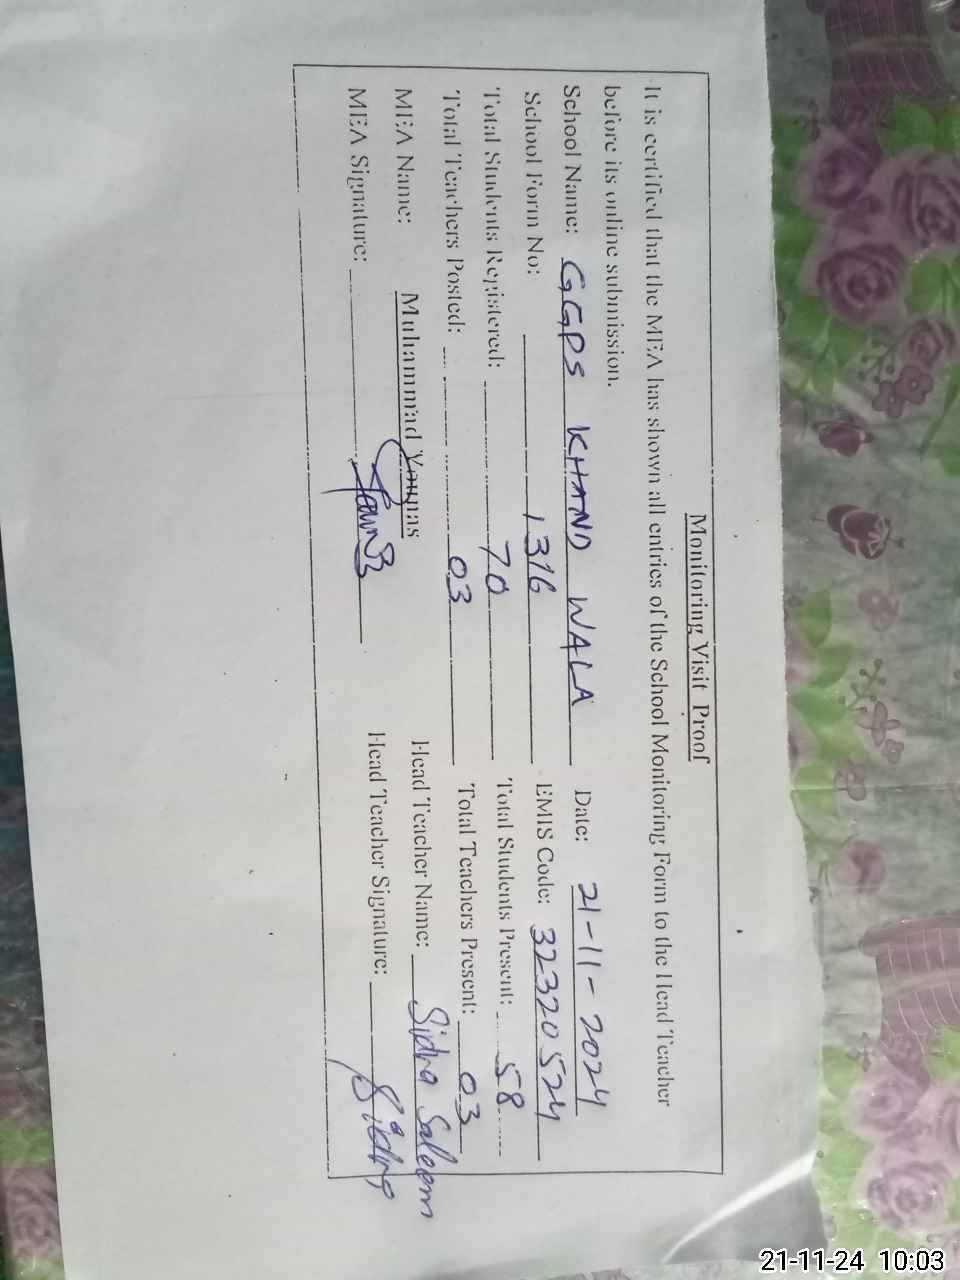 Monitoring Visit Proof
It is certified that the MEA has shown all entries of the School Monitoring Form to the Head Teacher
before its online submission.
School Name: GGPS KHAND WALA Date: 21-11-2024
School Form No: 1316 EMIS Code: 32320524
Total Students Registered: 70 Total Students Present: 58
Total Teachers Posted: 03 Total Teachers Present: 03
MEA Name: Muhammad Younas Head Teacher Name: Sidra Saleem
MEA Signature: Head Teacher Signature: Sidra
21-11-24 10:03